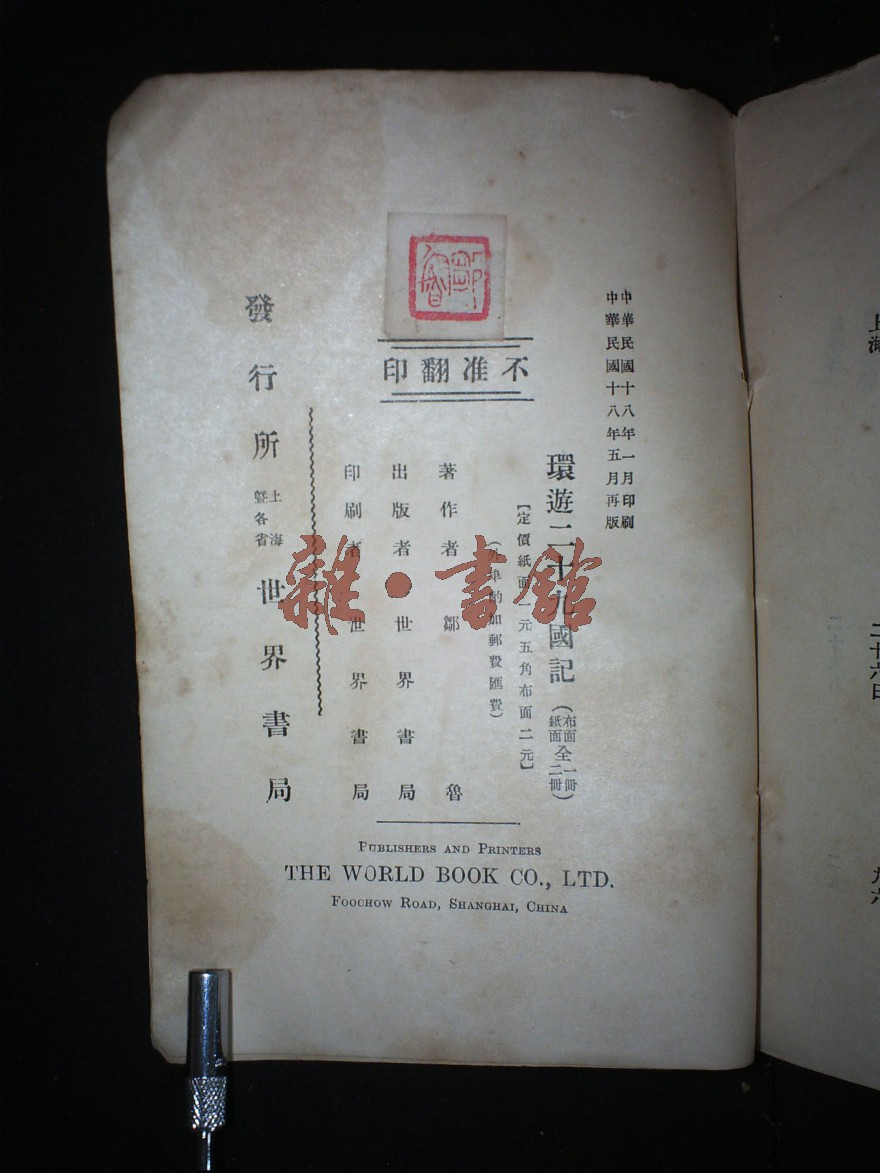 中華民國十八年一月印刷
中華民國十八年五月再版
環遊二十九國記
(布面全一冊
紙面全二冊)
【定價紙面一元五角布面二元】
(外埠酌加郵費匯費)
著作者 鄒魯
出版者 世界書局
印刷者 世界書局
不准翻印
鄒魯
發行所
上海
暨各省
世界書局
PUBLISHERS AND PRINTERS
THE WORLD BOOK CO., LTD.
FOOCHOW ROAD, SHANGHAI, CHINA
雜·書館
上海
二十六日
九六